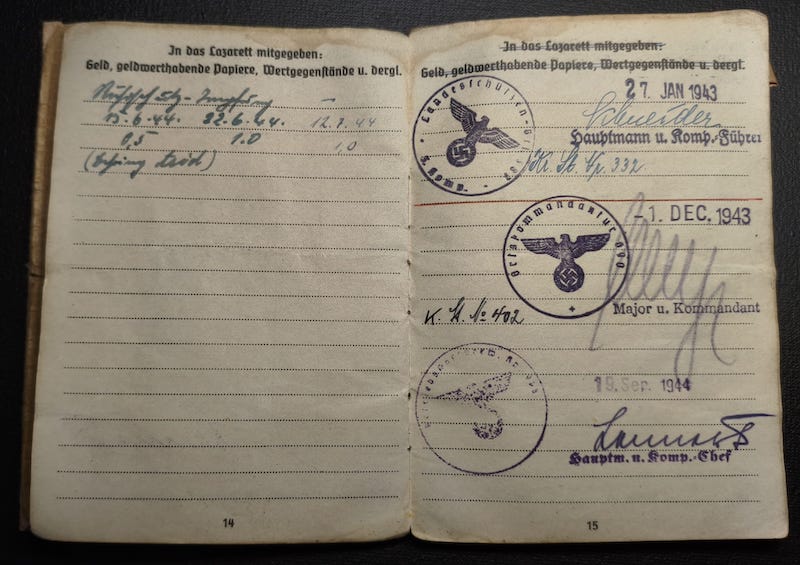 In das Lazarett mitgegeben:
Geld, geldwerthabende Papiere, Wertgegenstände u. dergl.
15.6.44. 22.6.44. 12.7.44
0,5 1.0 1,0
14
In das Lazarett mitgegeben:
Geld, geldwerthabende Papiere, Wertgegenstände u. dergl.
27 JAN 1943
Landesschützen-
Komp.
Schneider
Hauptmann u. Komp.-Führer
332
-1. DEC. 1943
Ortskommandantur
Major u. Kommandant
K. St. No 402
19. Sep. 1944
Hauptm. u. Komp.-Chef
15